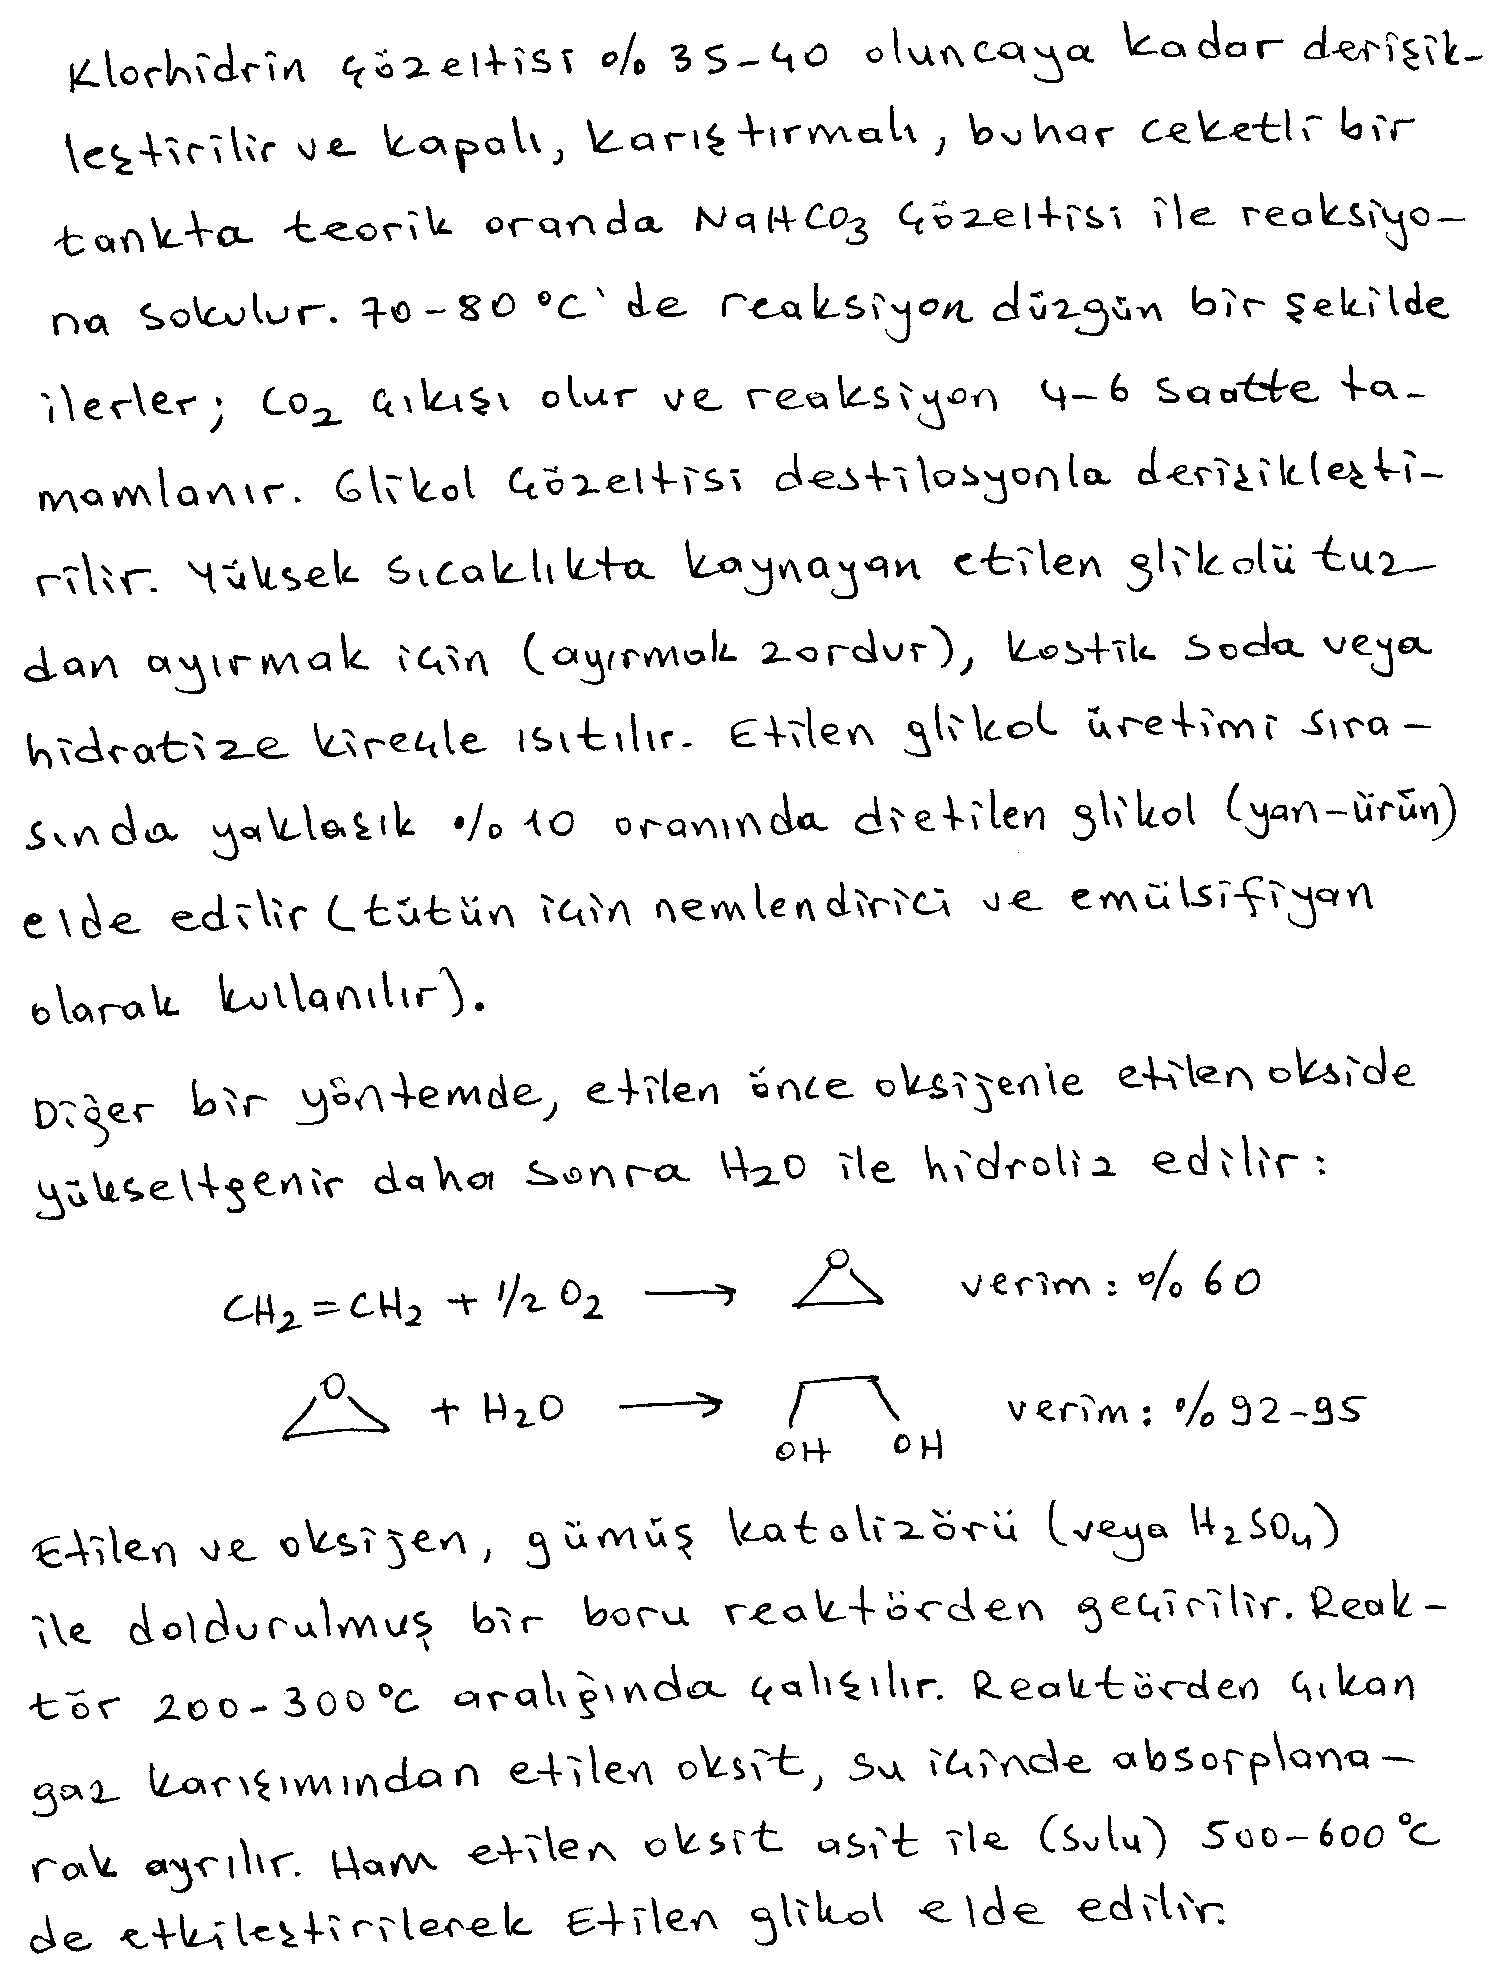 Klorhidrin çözeltisi % 35-40 oluncaya kadar derişik-
leştirilir ve kapalı, karıştırmalı, buhar ceketli bir
tankta teorik oranda NaHCO3 çözeltisi ile reaksiyo-
na sokulur. 70-80 °C'de reaksiyon düzgün bir şekilde
ilerler; CO2 çıkışı olur ve reaksiyon 4-6 saatte ta-
mamlanır. Glikol çözeltisi destilasyonla derişikleşti-
rilir. Yüksek sıcaklıkta kaynayan etilen glikolü tuz-
dan ayırmak için (ayırmak zordur), kostik soda veya
hidratize kireçle ısıtılır. Etilen glikol üretimi sıra-
sında yaklaşık % 10 oranında dietilen glikol (yan-ürün)
elde edilir (tütün için nemlendirici ve emülsifiyan
olarak kullanılır).
Diğer bir yöntemde, etilen önce oksijenle etilen okside
yükseltgenir daha sonra H2O ile hidroliz edilir:
CH2=CH2 + 1/2 O2 → O verim: % 60
O + H2O → OH OH verim: % 92-95
Etilen ve oksijen, gümüş katalizörü (veya H2SO4)
ile doldurulmuş bir boru reaktörden geçirilir. Reak-
tör 200-300°C aralığında çalışılır. Reaktörden çıkan
gaz karışımından etilen oksit, su içinde absorplana-
rak ayrılır. Ham etilen oksit asit ile (sulu) 500-600°C
de etkileştirilerek Etilen glikol elde edilir.